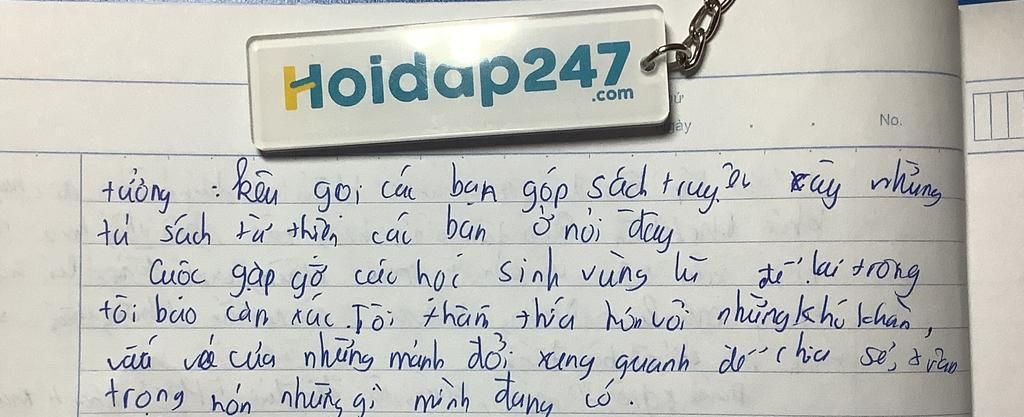 Hoidap247
.com
ứ
ày
No.
tưởng : kêu gọi các bạn góp sách truyện xây những
tủ sách từ thiện các bạn ở nơi đây
Cuộc gặp gỡ các học sinh vùng lũ để lại trong
tôi bao cản xúc. Tôi thấn thía hơn với những khó khăn,
vất vả của những mảnh đời xung quanh để chia sẻ, trân
trọng hơn những gì mình đang có.